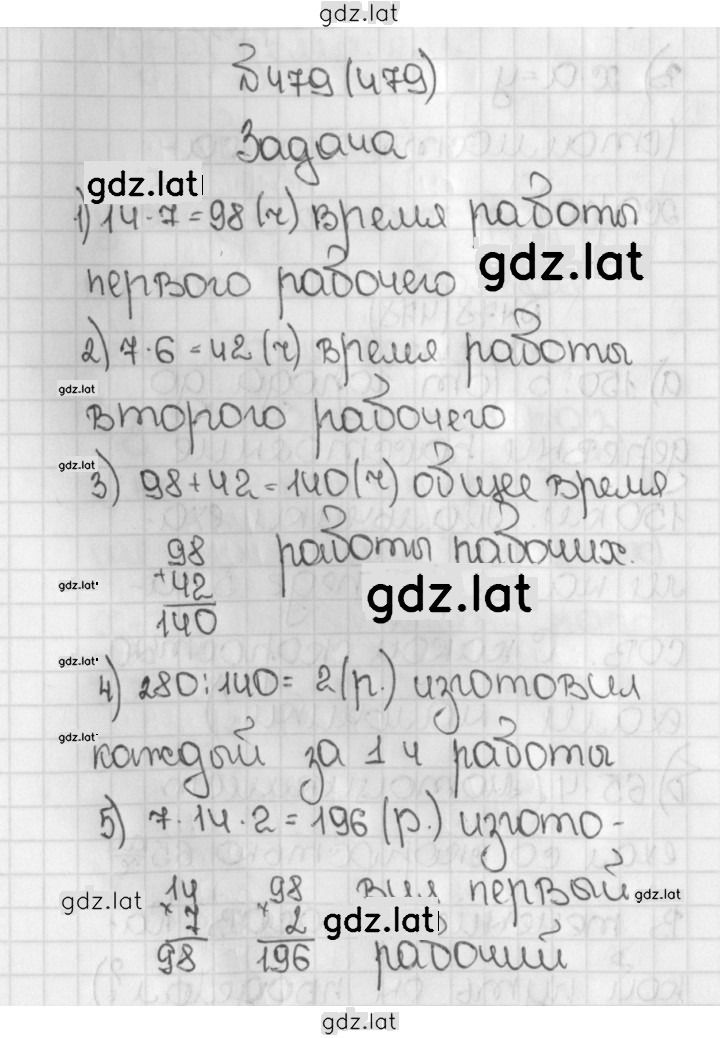 gdz.lat
№479 (479)
Задача
gdz.lat
1) 14·7=98 (ч) время работы
первого рабочего
gdz.lat
2) 7·6=42 (ч) время работы
gdz.lat
второго рабочего
gdz.lat
3) 98+42=140(ч) общее время
работы рабочих.
98
+42
140
gdz.lat
gdz.lat
gdz.lat
4) 280:140= 2(р.) изготовил
gdz.lat
каждый за 1 ч работы
5) 7·14·2=196 (р.) изгото-
вил первый
gdz.lat
gdz.lat
14
×7
98
98
×2
196
gdz.lat
рабочий
gdz.lat